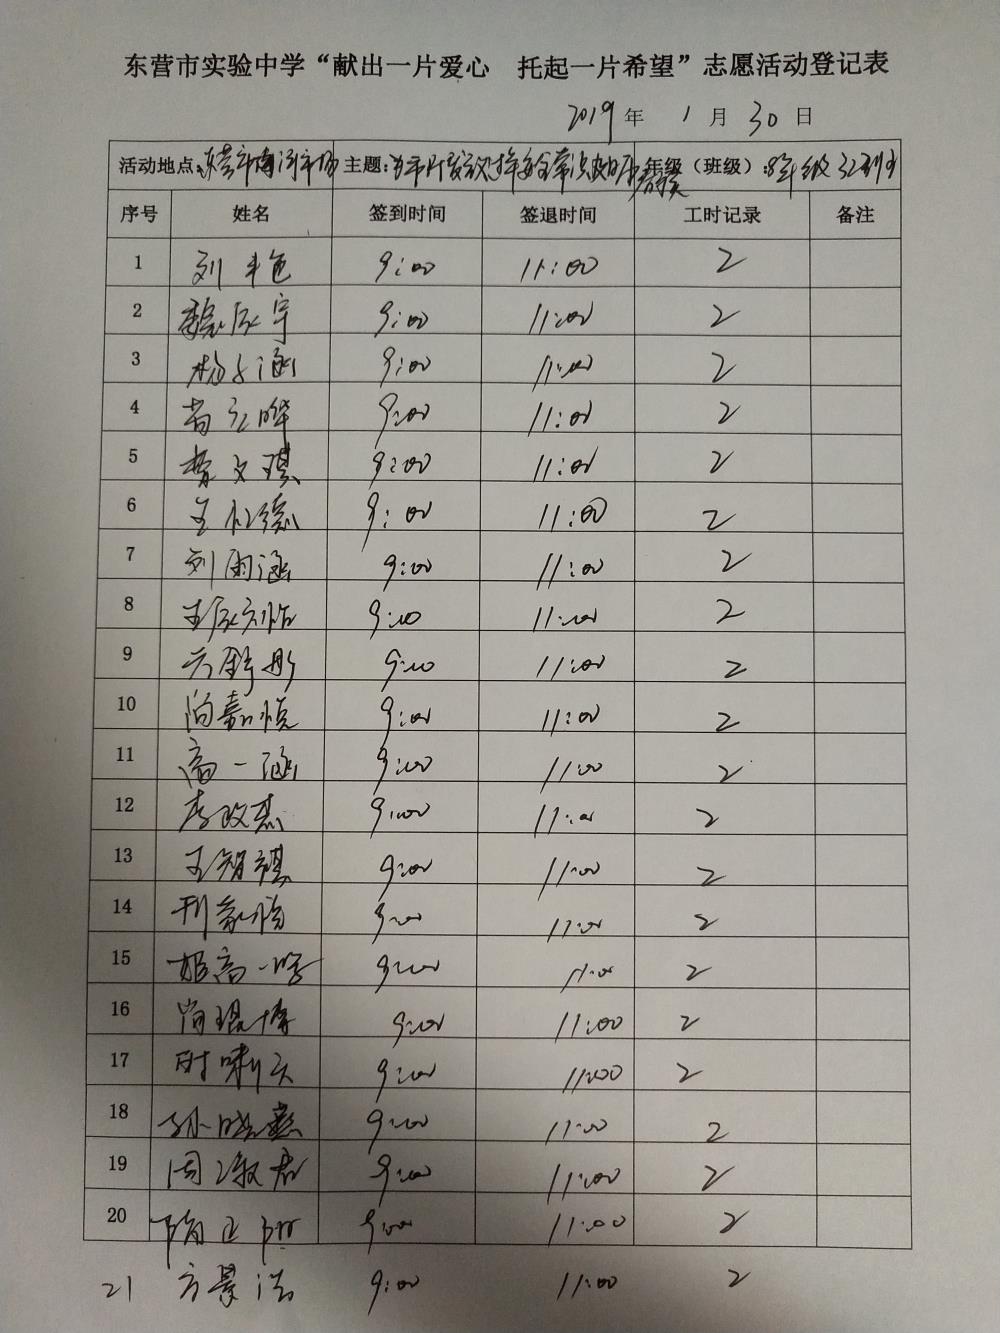 东营市实验中学“献出一片爱心 托起一片希望”志愿活动登记表
2019 年 1 月 30 日
活动地点: 主题: 年级（班级）: 8年级32
序号 姓名 签到时间 签退时间 工时记录 备注
1 刘 9:00 11:00 2
2 魏辰宇 9:00 11:00 2
3 杨子涵 9:00 11:00 2
4 9:00 11:00 2
5 文琪 9:00 11:00 2
6 9:00 11:00 2
7 刘雨涵 9:00 11:00 2
8 王辰 9:00 11:00 2
9 舒彤 9:00 11:00 2
10 嘉悦 9:00 11:00 2
11 高一涵 9:00 11:00 2
12 李政 9:00 11:00 2
13 王智祺 9:00 11:00 2
14 9:00 11:00 2
15 姬高一 9:00 11:00 2
16 尚琨博 9:00 11:00 2
17 时 9:00 11:00 2
18 孙晓 9:00 11:00 2
19 周敬 9:00 11:00 2
20 隋正 9:00 11:00 2
21 方景浩 9:00 11:00 2